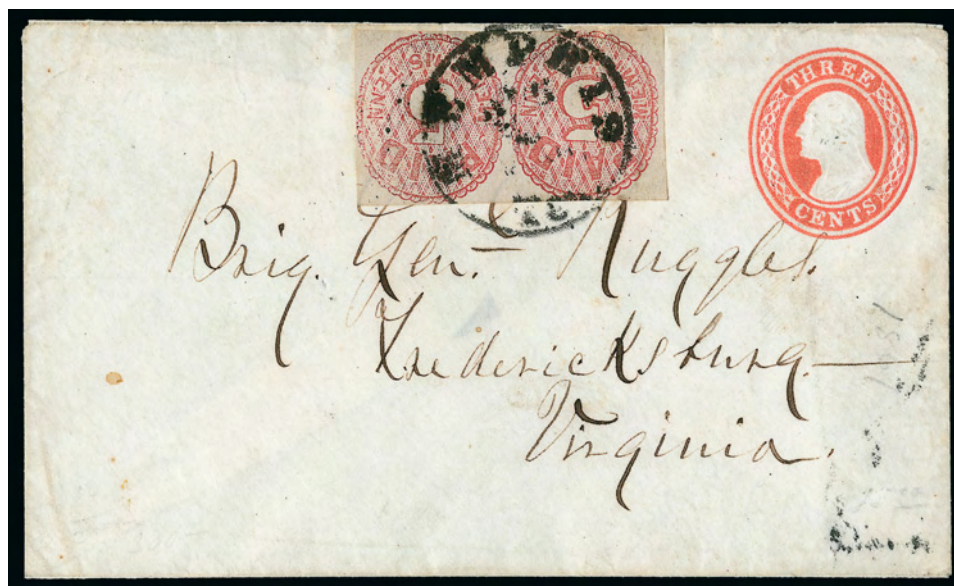 MEMPHIS
TEN
PAID
5
PAID
5
THREE
CENTS
Brig. Gen. Ruggles.
Fredericksburg
Virginia.